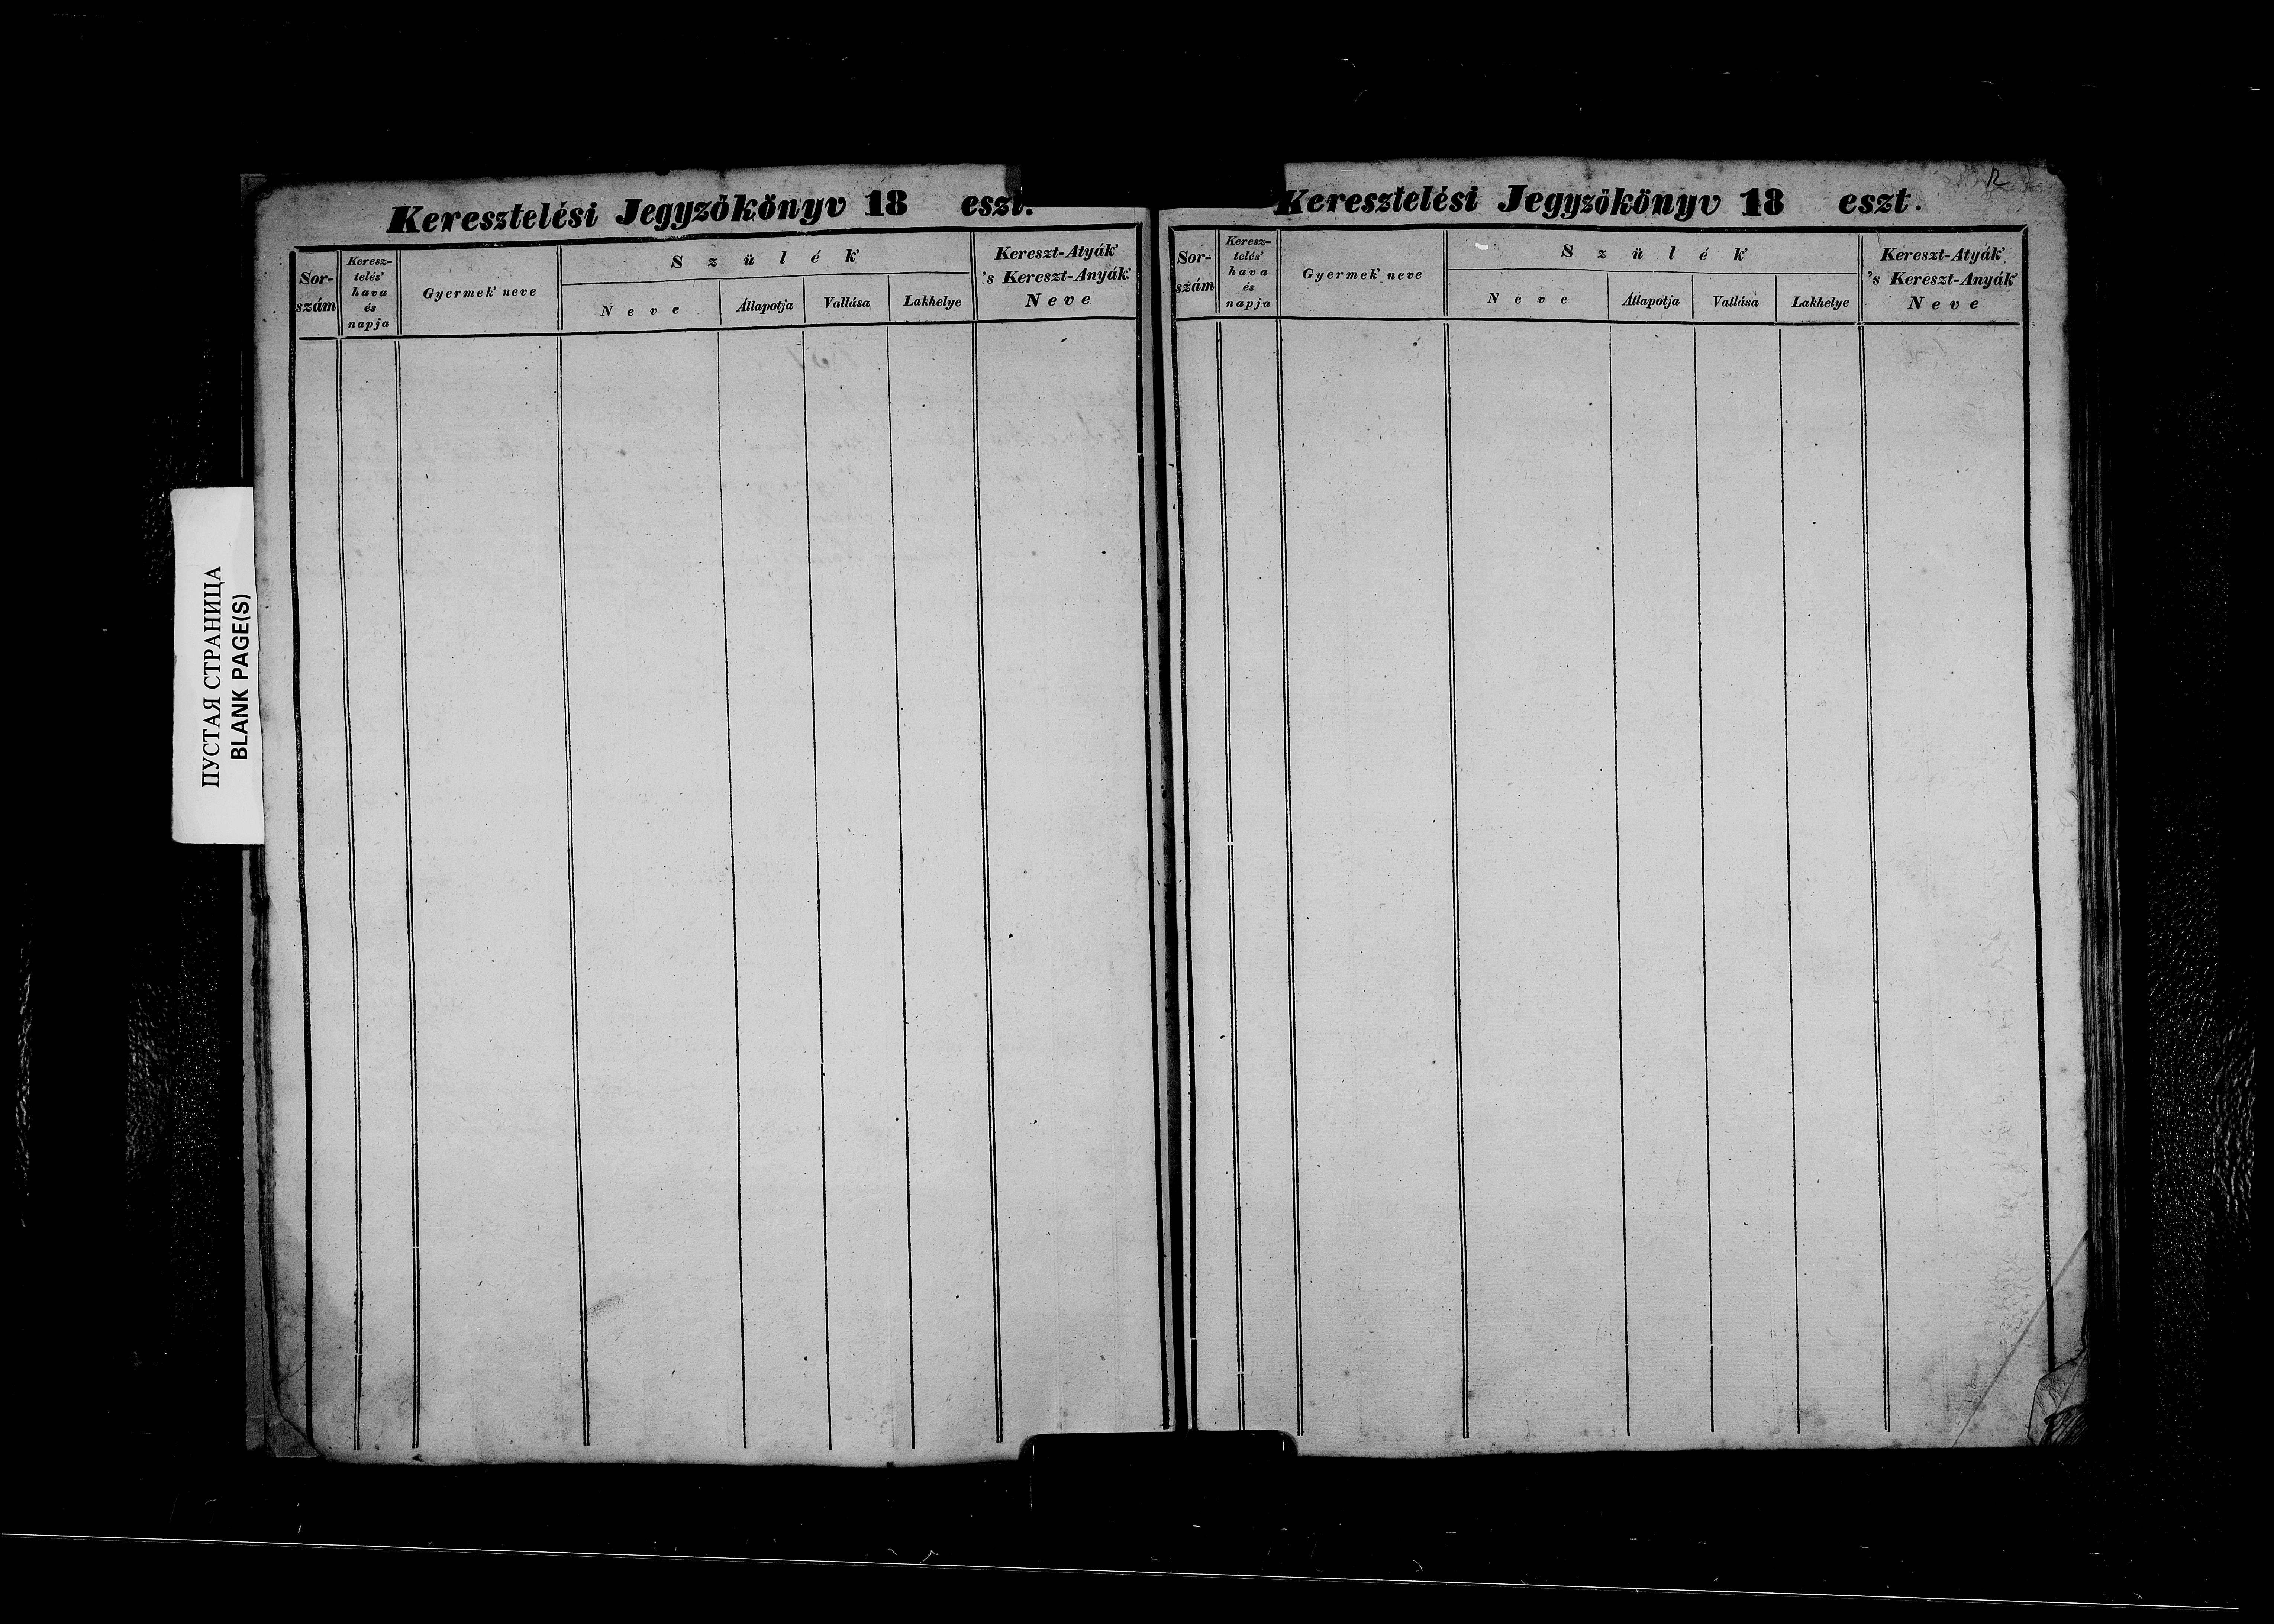 ПУСТАЯ СТРАНИЦА
BLANK PAGE(S)
Keresztelési Jegyzökönyv 18 eszt.
Sor-
szám
Keresz-
telés'
hava
és
napja
Gyermek' neve
Szülék'
Neve
Állapotja
Vallása
Lakhelye
Kereszt-Atyák'
's Kereszt-Anyák'
Neve
Keresztelési Jegyzökönyv 18 eszt.
Sor-
szám
Keresz-
telés'
hava
és
napja
Gyermek' neve
Szülék'
Neve
Állapotja
Vallása
Lakhelye
Kereszt-Atyák'
's Kereszt-Anyák'
Neve